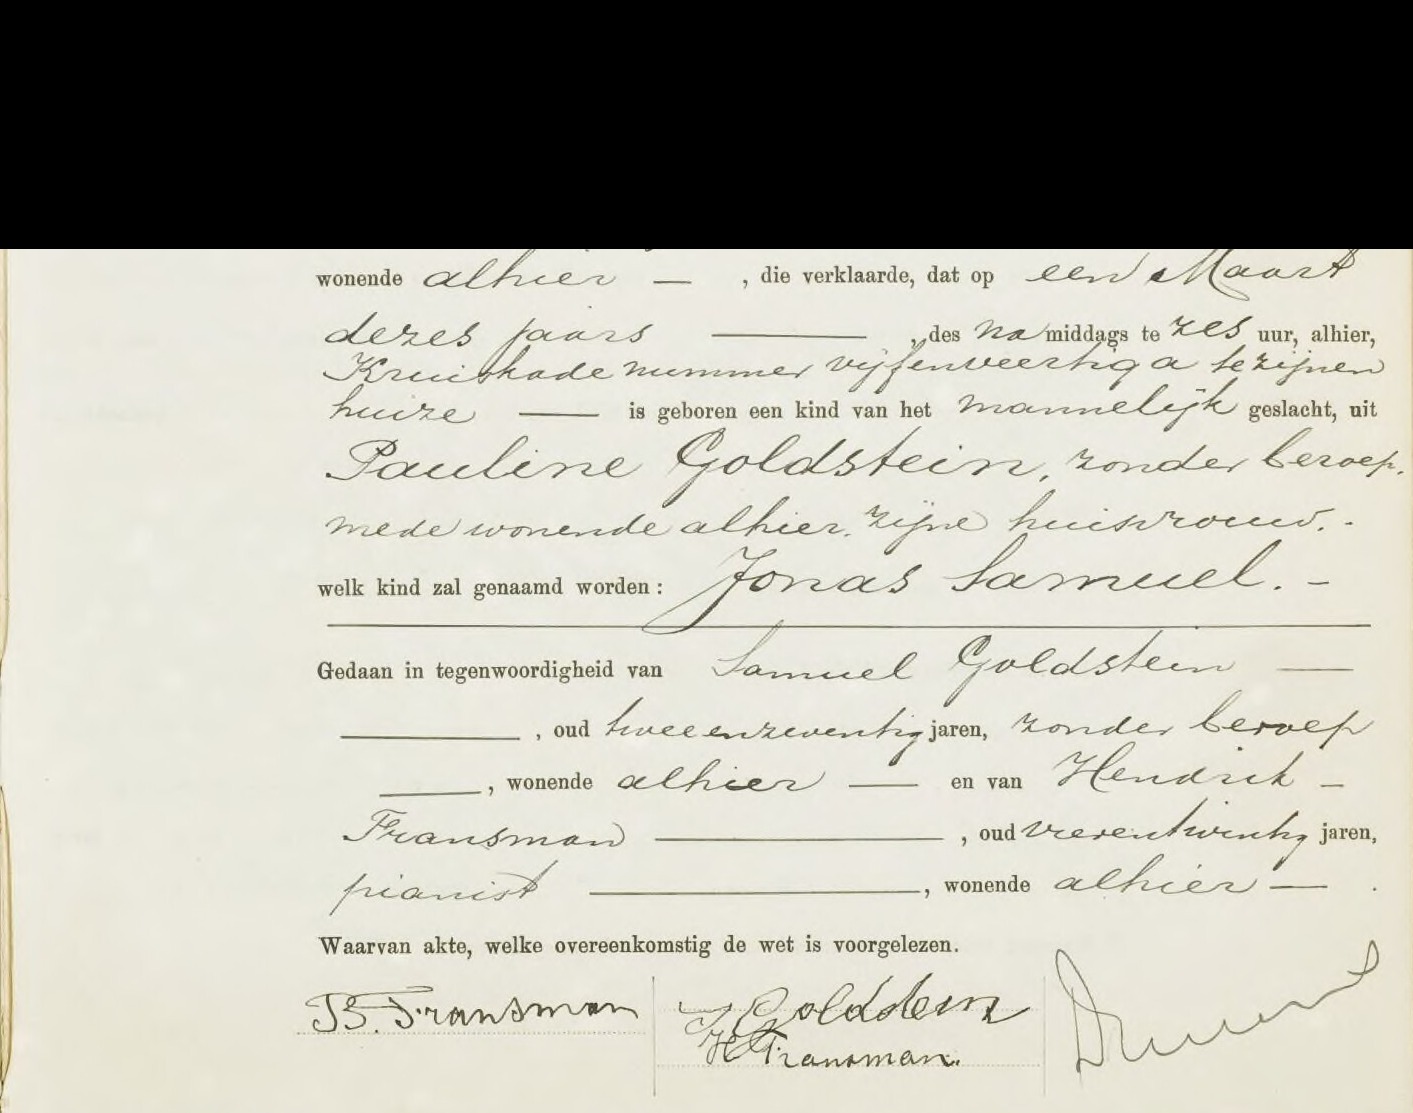 wonende alhier — , die verklaarde, dat op een Maart
dezes jaars — , des namiddags te zes uur, alhier,
Kruiskade nummer vijfenveertig a te zijnen
huize — is geboren een kind van het mannelijk geslacht, uit
Pauline Goldstein, zonder beroep,
mede wonende alhier, zijne huisvrouw. -
welk kind zal genaamd worden: Jonas Samuel. -
Gedaan in tegenwoordigheid van Samuel Goldstein —
— , oud tweeenzeventig jaren, zonder beroep
— , wonende alhier — en van Hendrik -
Fransman — , oud vierentwintig jaren,
pianist — , wonende alhier — .
Waarvan akte, welke overeenkomstig de wet is voorgelezen.
Fransman
Goldstein
H Fransman.